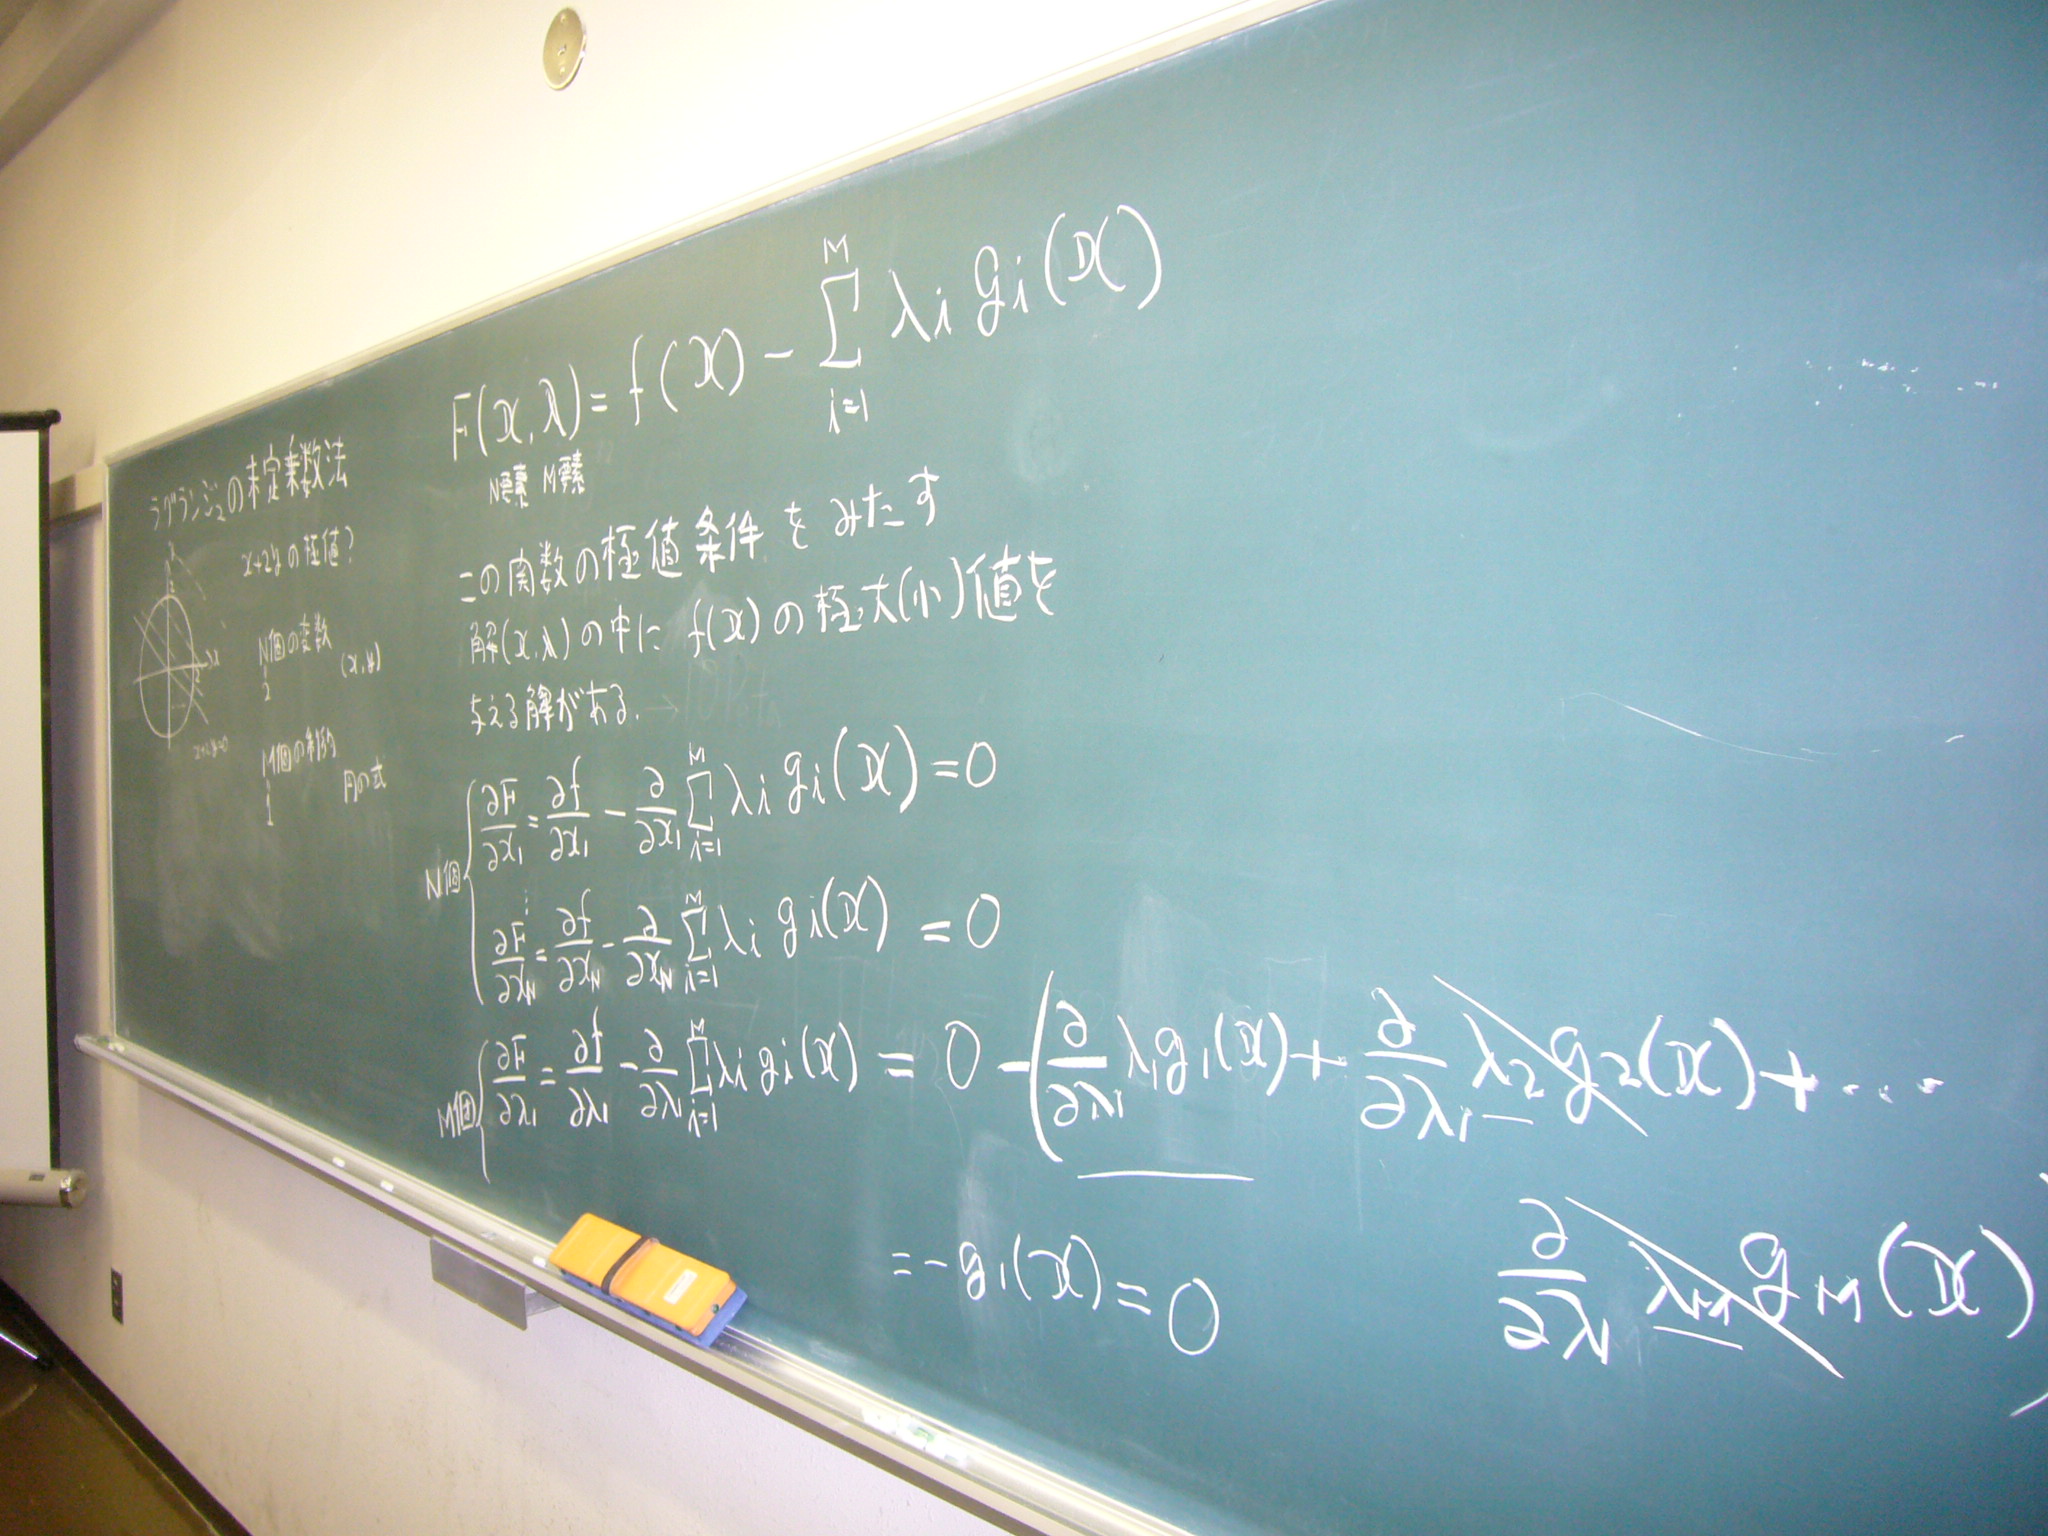 ラグランジュの未定乗数法
x+2yの極値?
N個の変数
2
(x,y)
M個の制約
1
円の式
x
2
2
F(x,λ)=f(x)-∑_{i=1}^{M} λi gi(x)
N要素 M要素
この関数の極値条件をみたす
解(x,λ)の中に f(x)の極大(小)値を
与える解がある.
N個 { ∂F/∂x1 = ∂f/∂x1 - ∂/∂x1 ∑_{i=1}^{M} λi gi(x) = 0
⋮
∂F/∂xN = ∂f/∂xN - ∂/∂xN ∑_{i=1}^{M} λi gi(x) = 0
M個 { ∂F/∂λ1 = ∂f/∂λ1 - ∂/∂λ1 ∑_{i=1}^{M} λi gi(x) = 0 - (∂/∂λ1 λ1 g1(x) + ∂/∂λ1 λ2 g2(x) + ...
∂/∂λ1 λM gM(x))
= - g1(x) = 0